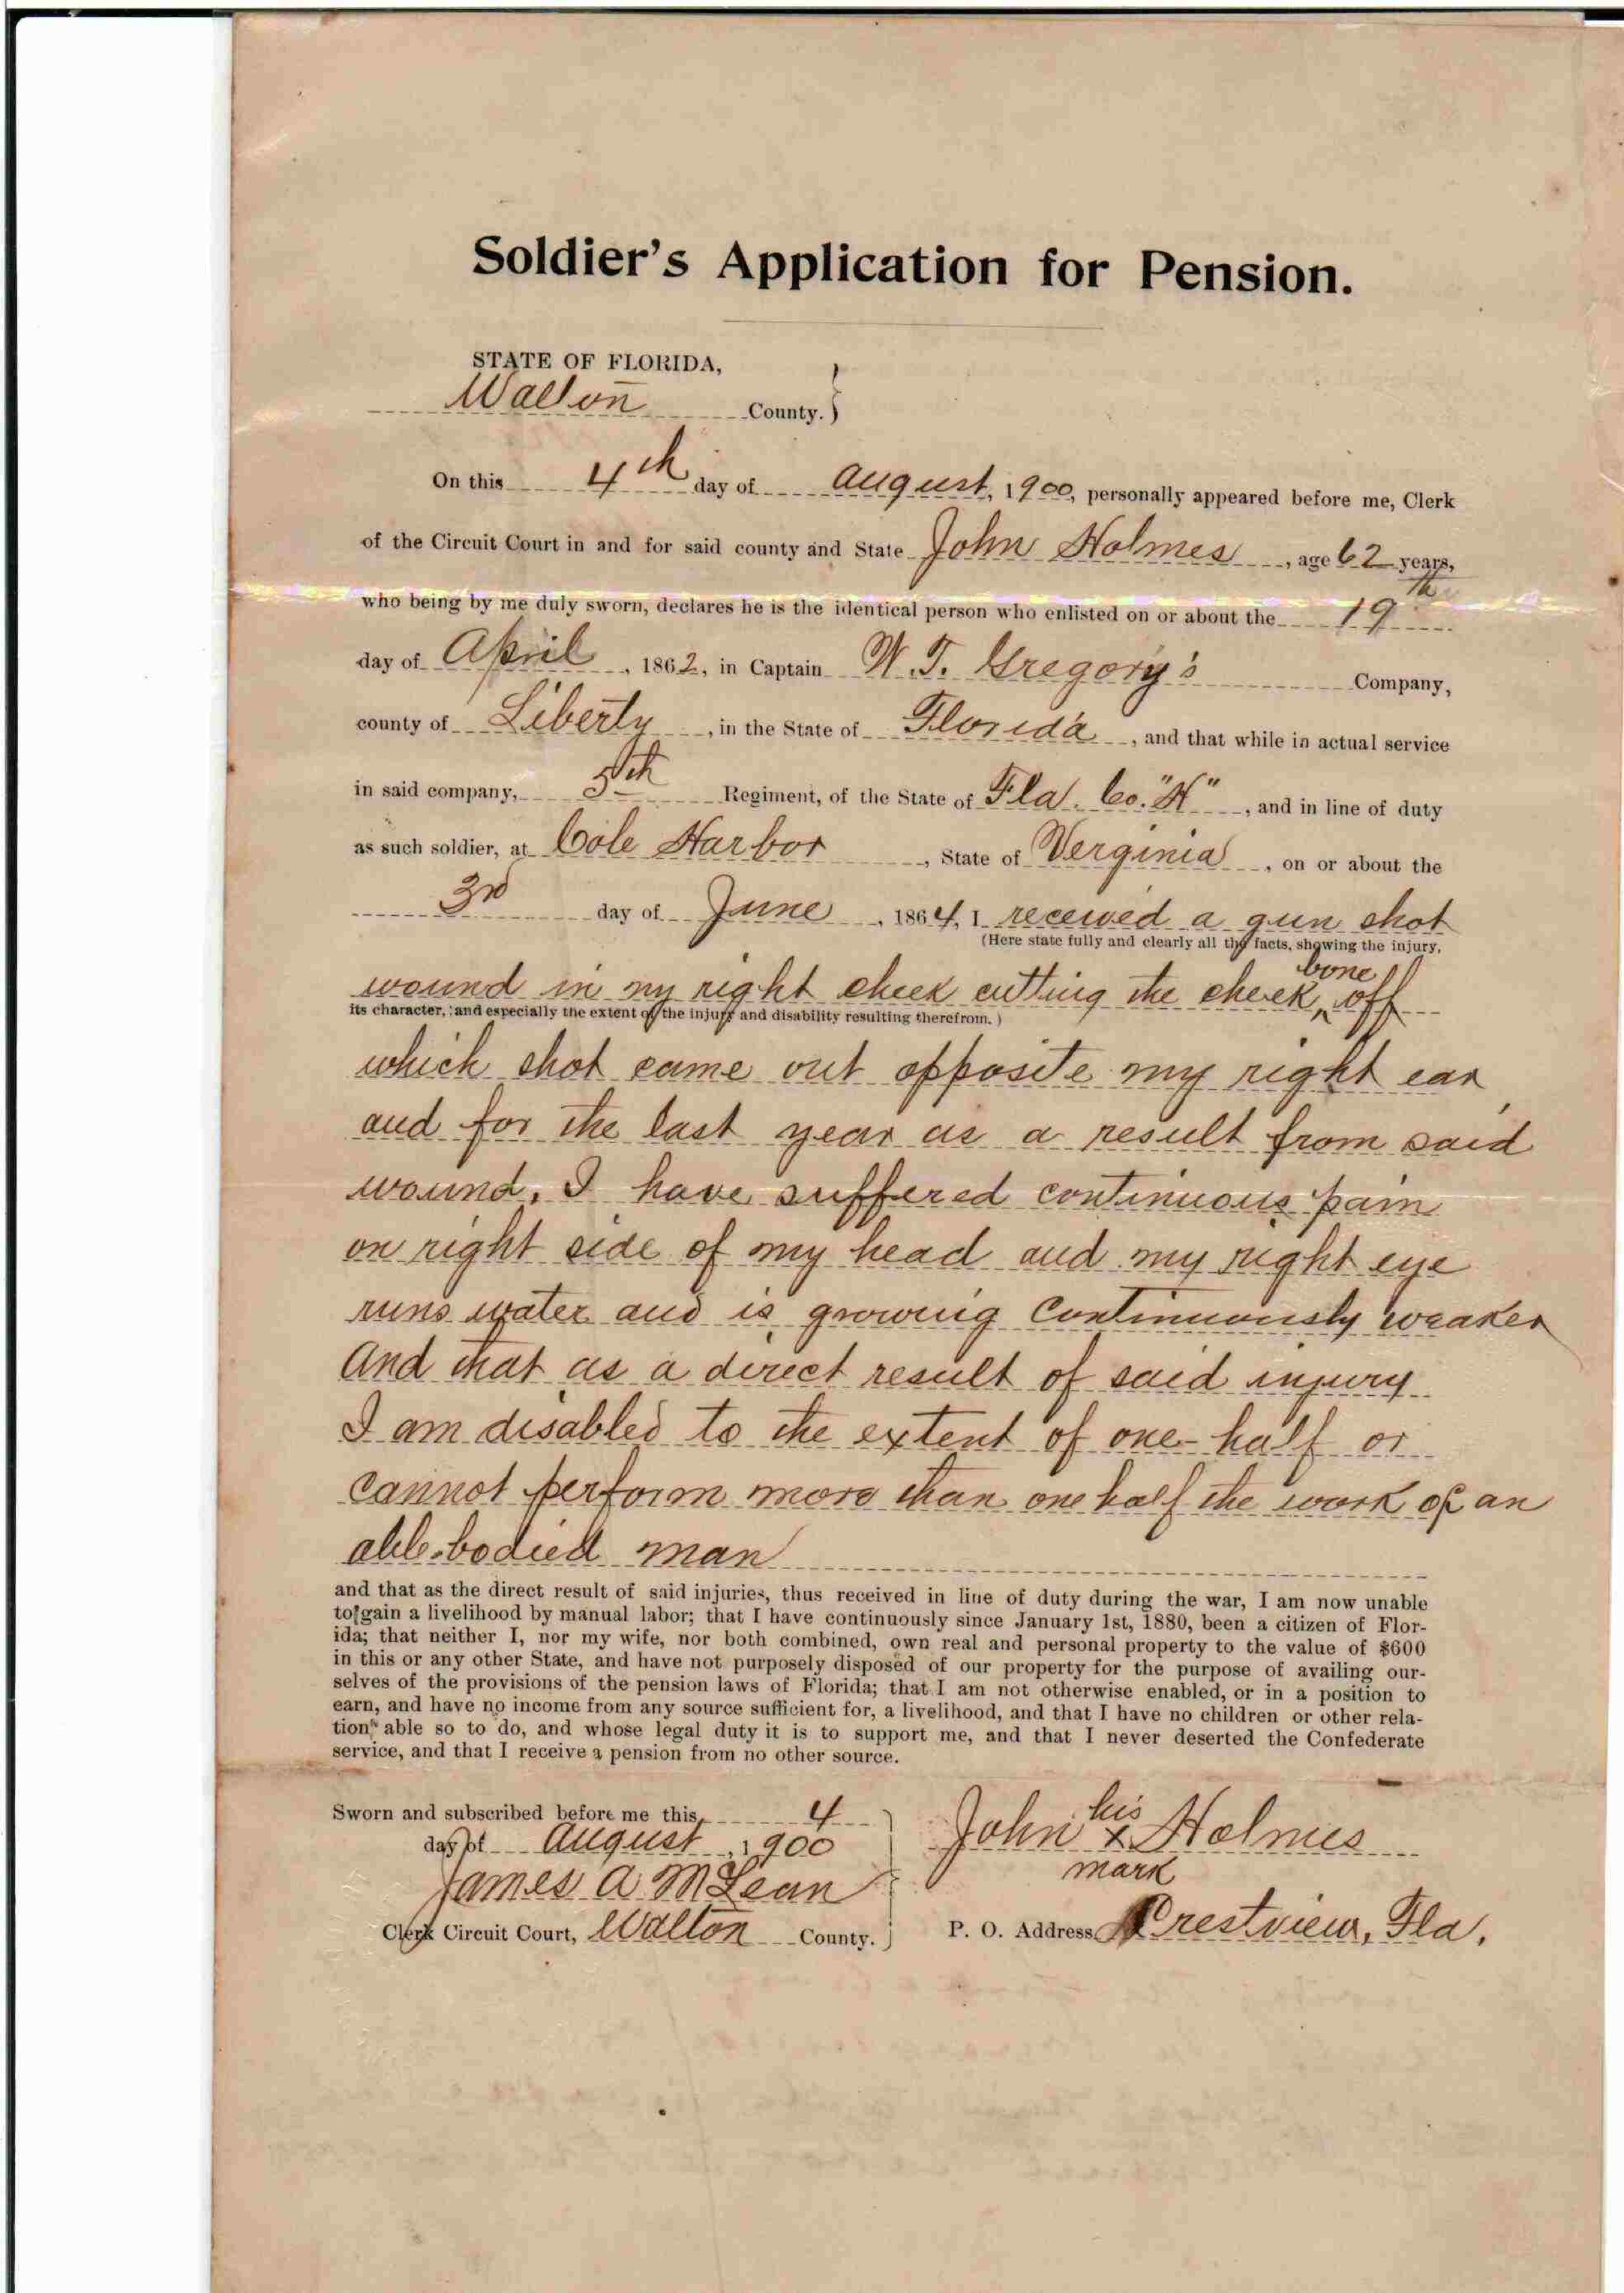 Soldier's Application for Pension.
STATE OF FLORIDA,
Walton County. }
On this 4th day of August, 1900, personally appeared before me, Clerk
of the Circuit Court in and for said county and State John Holmes, age 62 years,
who being by me duly sworn, declares he is the identical person who enlisted on or about the 19th
day of April, 1862, in Captain W. T. Gregory's Company,
county of Liberty, in the State of Florida, and that while in actual service
in said company, 5th Regiment, of the State of Fla. Co. "H", and in line of duty
as such soldier, at Cole Harbor, State of Verginia, on or about the
3rd day of June, 1864, I received a gun shot
(Here state fully and clearly all the facts, showing the injury,
wound in my right cheek cutting the cheek bone off
its character, and especially the extent of the injury and disability resulting therefrom.)
which shot came out opposite my right ear
and for the last year as a result from said
wound, I have suffered continuous pain
on right side of my head and my right eye
runs water and is growing continuously weaker
And that as a direct result of said injury
I am disabled to the extent of one-half or
cannot perform more than one half the work of an
able-bodied man
and that as the direct result of said injuries, thus received in line of duty during the war, I am now unable
to gain a livelihood by manual labor; that I have continuously since January 1st, 1880, been a citizen of Flor-
ida; that neither I, nor my wife, nor both combined, own real and personal property to the value of $600
in this or any other State, and have not purposely disposed of our property for the purpose of availing our-
selves of the provisions of the pension laws of Florida; that I am not otherwise enabled, or in a position to
earn, and have no income from any source sufficient for, a livelihood, and that I have no children or other rela-
tions able so to do, and whose legal duty it is to support me, and that I never deserted the Confederate
service, and that I receive a pension from no other source.
Sworn and subscribed before me this 4
day of August, 1900
James A McLean
Clerk Circuit Court, Walton County. }
John his x mark Holmes
P. O. Address Crestview, Fla.